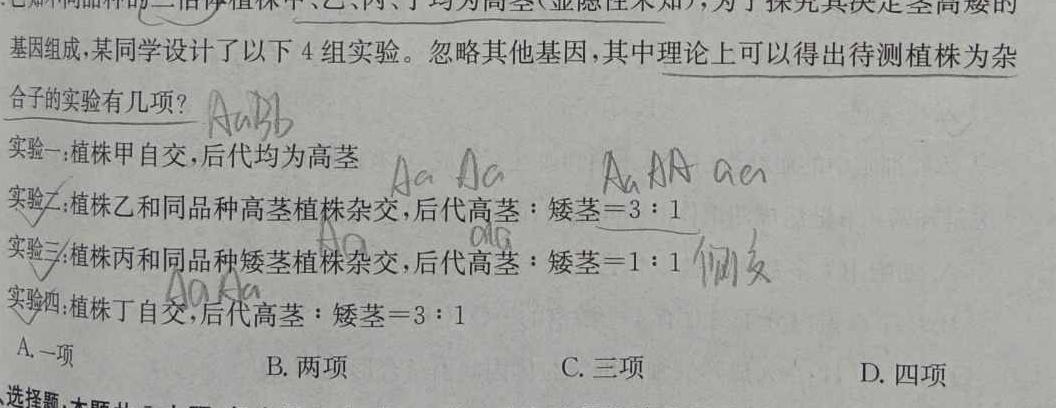 同品种的二倍体植株甲、乙、丙、丁均为高茎(显隐性未知),为了探究其决定茎高矮的
基因组成,某同学设计了以下 4 组实验。忽略其他基因,其中理论上可以得出待测植株为杂
合子的实验有几项?
AaBb
实验一:植株甲自交,后代均为高茎
Aa Aa Aa AA aa
实验二:植株乙和同品种高茎植株杂交,后代高茎∶矮茎=3∶1
Aa aa
实验三:植株丙和同品种矮茎植株杂交,后代高茎∶矮茎=1∶1 测交
Aa Aa
实验四:植株丁自交,后代高茎∶矮茎=3∶1
A. 一项 B. 两项 C. 三项 D. 四项
选择题